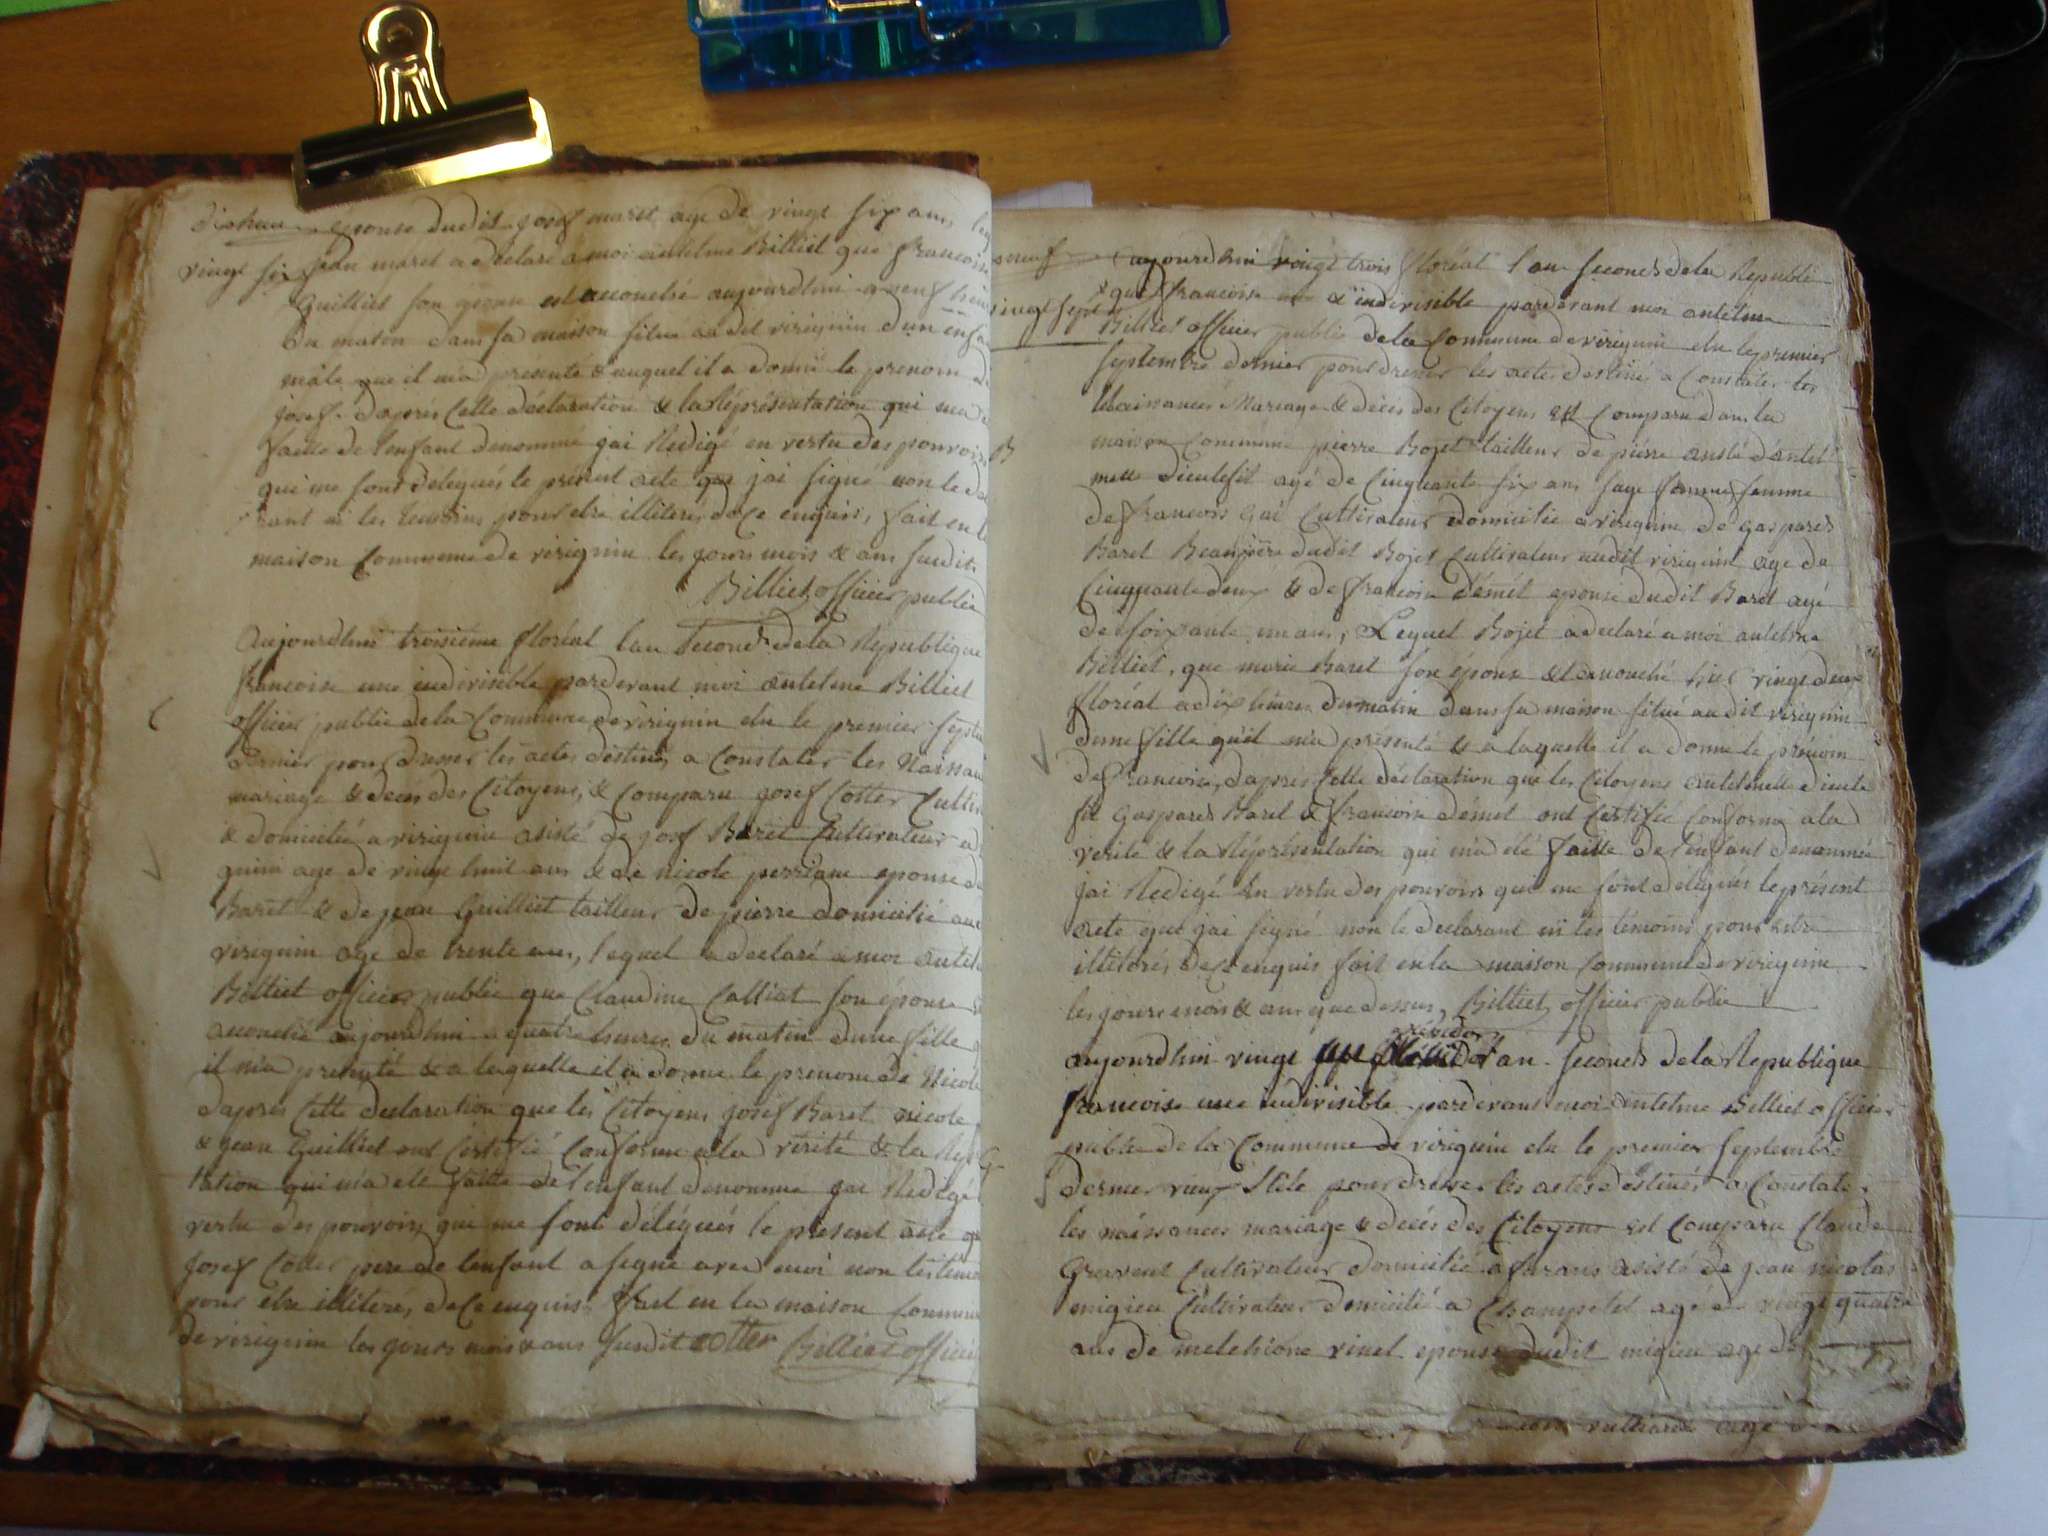 epouse dudit josef maret age de vingt six ans
vingt six jean maret a declaré a moi antelme Billiet que francoise
Guilliet son epouse est accouché aujourdhui a neuf heur
du maton dans sa maison situé au dit virignin dun enfan
mâle que il m'a presenté & auquel il a donné le prenom de
josef. daprés cette déclaration & la répresentation qui ma
faitte de lenfant denommé jai Redigé en vertu des pouvoirs
qui me sont delegués le present acte que jai signé non le decla
rant ni les temoins pour etre illiterés de ce enquis, fait en la
maison commune de virignin les jours mois & ans susdits
Billiet officier public
Aujourdhui troisiéme floréal lan second de la Republique
francoise une indivisible pardevant moi antelme Billiet
officier public de la Commune de virignin elu le premier septe
dernier pour dresser les actes destinés a Constater les Naissan
mariage & deces des Citoyens, & Comparu josef Cotter Cultiv
& domicilié a virignin asisté de josef Baret Cultivateur a
gnin age de vingt huit ans & de nicole perriam epouse du
Baret & de jean Guilliet tailleur de pierre domicilié au
virignin age de trente ans, lequel a declaré a moi antel
Billiet officier public que Claudine Calliat son épouse
accouché aujourdhui a quatre heures du matin dune fille
il m'a presenté & a laquelle il a donné le prenom de Nicole
daprés Cette declaration que les Citoyens josef Baret nicole
& jean Guilliet ont Certifié Conforme a la vérité & la Repré
tation qui m'a eté faitte de lenfant denommé jai Redigé
vertu des pouvoirs qui me sont délégués le present acte que
josef Cotter pere de lenfant a signé avec moi non les temo
pour etre illiterés de ce enquis fait en la maison Commun
de virignin les jours mois & ans susdit cotter Billiet officier
aujourdhui vingt trois floréal lan second de la Republi
que francoise une & indivisible pardevant moi antelme
vingt sept
Billiet officier public de la Commune de virignin elu le premier
septembre dernier pour dresser les actes destinés a Constater les
Naissances Mariage & décès des Citoyens est Comparu dans la
B
maison Commune pierre Bojet tailleur de pierre assisté d'antel
mette dieulefit agé de Cinquante six ans sage femme femme
de francois gai Cultivateur domicilié a virignin de gaspard
Baret Beaupère dudit Bojet Cultivateur audit virignin age de
Cinquante deux & de francoise démet epouse dudit Baret agé
de soixante un ans, Lequel Bojet a declaré a moi antelme
Billiet, que marie Baret son épouse est accouché hier vingt deux
floréal a dix heures du matin dans sa maison situé au dit virignin
dune fille qu'il m'a presenté & a laquelle il a donné le prénom
de francoise, daprés Cette déclaration que les Citoyens antelmette dieule
fit Gaspard Baret & francoise démet ont Certifié Conforme a la
verité & la Réprésentation qui m'a eté faitte de lenfant denommé
jai Redigé en vertu des pouvoirs qui me sont délégués le présent
acte que jai signé non le declarant ni les témoins pour etre
illiterés de ce enquis fait en la maison Commune de virignin
les jours mois & ans que dessus, Billiet officier public
aujourdhui vingt lan second de la Republique
francoise une indivisible pardevant moi antelme Billiet officier
public de la Commune de virignin elu le premier septembre
dernier vieux stile pour dresser les actes destinés a Constater
les naissances mariage & decés des Citoyens est Comparu Claude
Gravent Cultivateur domicilié a asisté de jean nicolas
migieu Cultivateur domicilié a agé de vingt quatre
ans de melchione vinet epouse dudit migieu age de
age